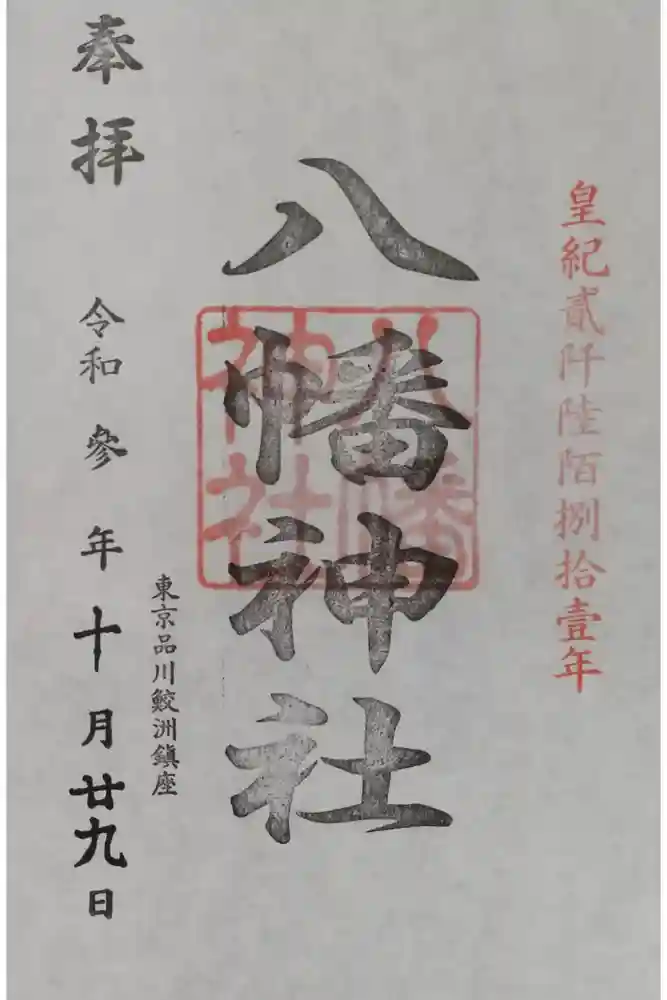 皇紀貳阡陸陌捌拾壹年
八幡神社
八幡
神社
東京品川鮫洲鎮座
奉拝
令和参年十月廿九日